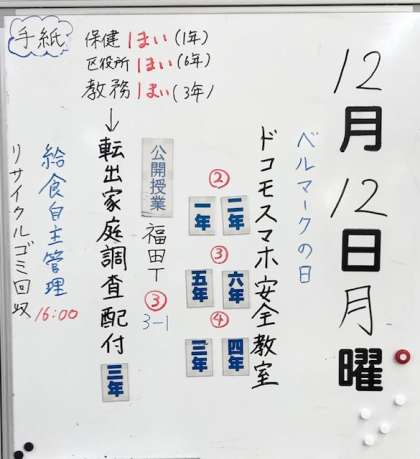 12月12日月曜
ベルマークの日
ドコモスマホ安全教室
② 二年 一年
③ 六年 五年
④ 四年 三年
公開授業 福田T ③ 3-1
手紙
保健 1まい(1年)
区役所 1まい(6年)
教務 1まい(3年)
↓
転出家庭調査配付 三年
給食自主管理 16:00
リサイクルゴミ回収